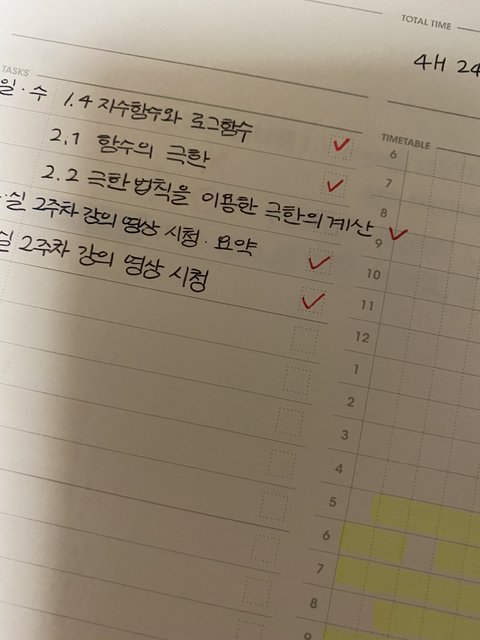 TOTAL TIME
4H 24
TASKS
일·수 1.4 지수함수와 로그함수
2.1 함수의 극한
2.2 극한법칙을 이용한 극한의 계산
실 2주차 강의 영상 시청·요약
실 2주차 강의 영상 시청
TIMETABLE
6
7
8
9
10
11
12
1
2
3
4
5
6
7
8
9